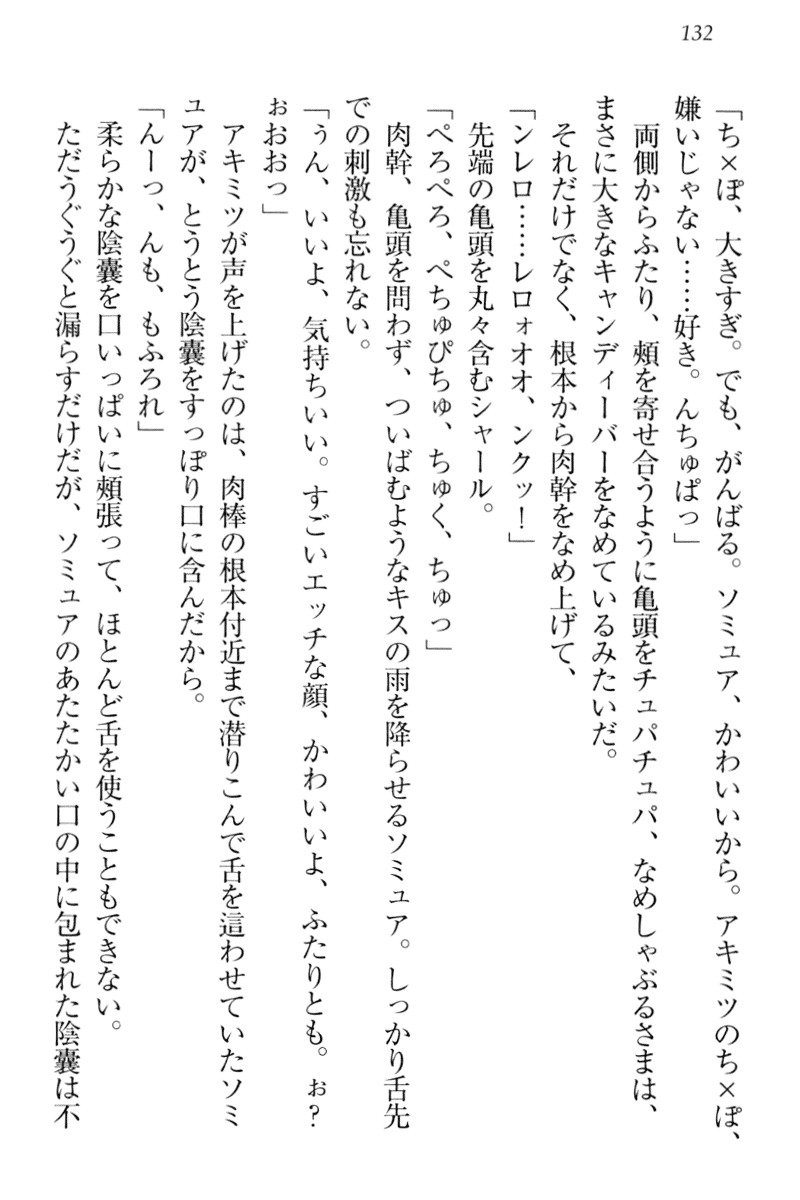 132
「ち×ぽ、大きすぎ。でも、がんばる。ソミュア、かわいいから。アキミツのち×ぽ、
嫌いじゃない……好き。んちゅぱっ」
両側からふたり、頰を寄せ合うように亀頭をチュパチュパ、なめしゃぶるさまは、
まさに大きなキャンディーバーをなめているみたいだ。
それだけでなく、根本から肉幹をなめ上げて、
「ンレロ……レロォオオ、ンクッ！」
先端の亀頭を丸々含むシャール。
「ぺろぺろ、ぺちゅぴちゅ、ちゅく、ちゅっ」
肉幹、亀頭を問わず、ついばむようなキスの雨を降らせるソミュア。しっかり舌先
での刺激も忘れない。
「うん、いいよ、気持ちいい。すごいエッチな顔、かわいいよ、ふたりとも。ぉ？
ぉおおっ」
アキミツが声を上げたのは、肉棒の根本付近まで潜りこんで舌を這わせていたソミ
ュアが、とうとう陰嚢をすっぽり口に含んだから。
「んーっ、んも、もふろれ」
柔らかな陰嚢を口いっぱいに頰張って、ほとんど舌を使うこともできない。
ただうぐうぐと漏らすだけだが、ソミュアのあたたかい口の中に包まれた陰嚢は不